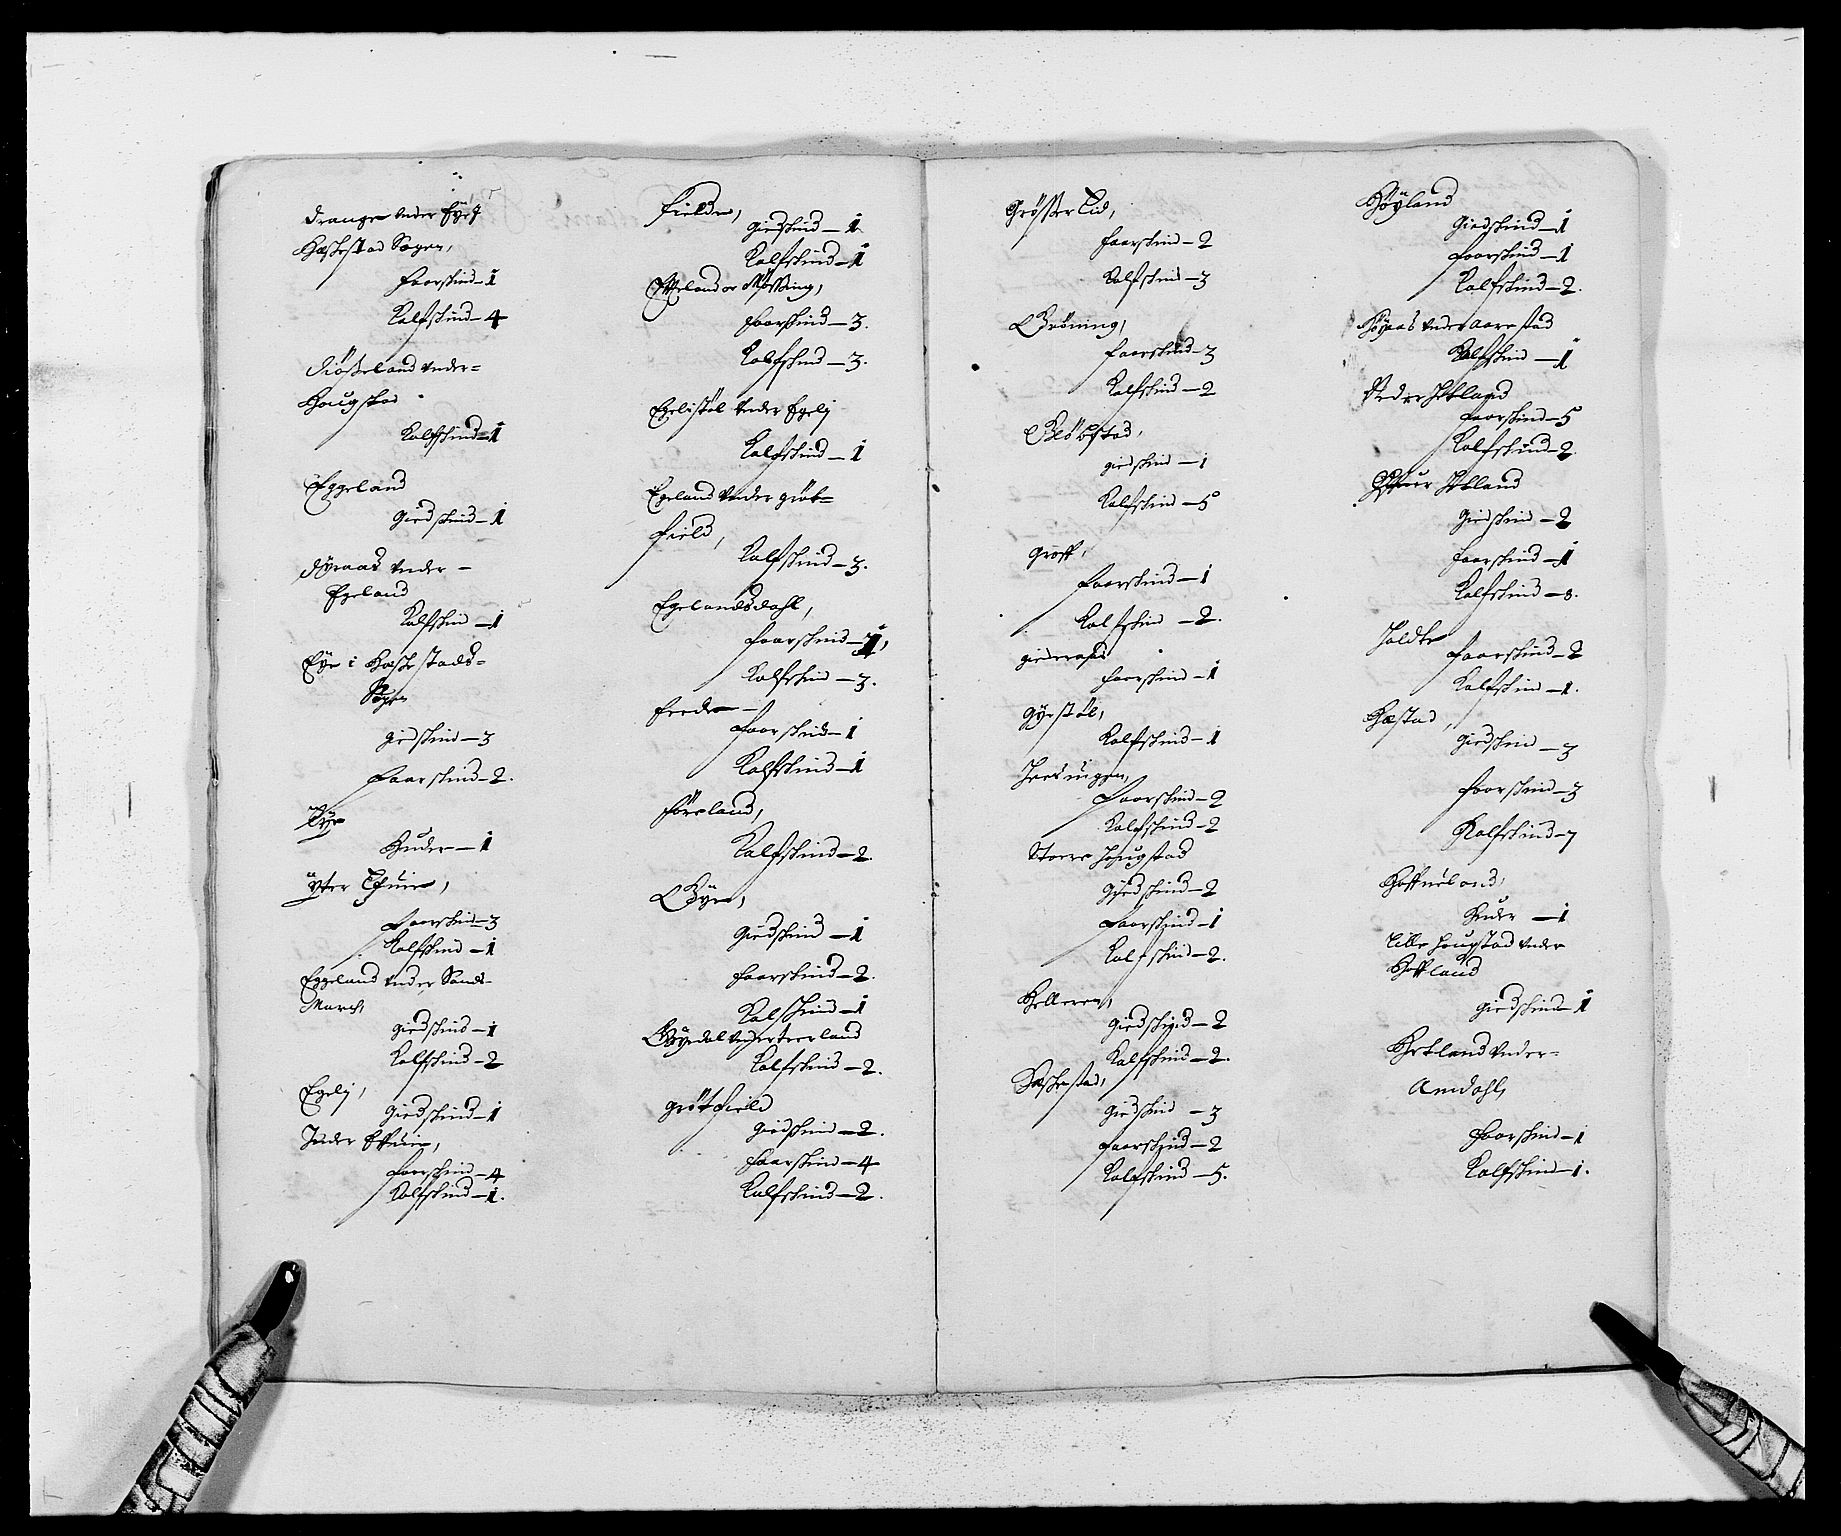 Drange under Eye i
Hæschestad Sogen,
Faarskind - 1
Kalfskind - 4
Diöseland under =
Haugstad
Kalfskind - 1
Eggeland
Giedskind - 1
Dyraas under -
Egeland
Kalfskin - 1
Eye i Hæschestads =
Sogen
Giedskind - 3
Faarskind - 2.
Eye
Huder - 1
ÿter
Faarskin - 3
Kalfskind - 1
Eggeland under Sands-
March
giedskind - 1
Kalfskind - 2
Egeli,
Giedskind - 1
Inder
Faarskind - 4
Kalfskind - 1.
Fielde,
Giedskind - 1
Kalfskind - 1
Faarskind - 3.
Kalfskind - 3.
Egelistöl under Egelj
Kalfskind - 1
Egeland under gröt =
field,
Kalfskind - 3.
Egelandsdahl,
Faarskind - 1,
Kalfskin - 3.
Frede -
Faarskind - 1
Kalfskind - 1
Föreland,
Kalfskind - 2.
Gÿen,
Giedskind - 1
Faarskind - 2.
Kalfskind - 1
Gÿedal under
Kalfskind - 2.
grötfield
Giedskind - 2.
Faarskind - 4
Kalfskind - 2.
Faarskind - 2
Kalfskind - 3
Gröning,
Faarskind - 3
Kalfskind - 2
giedskind - 1
Kalfskind - 5
Groff,
Faarskind - 1
Kalfskin - 2.
Faarskind - 1
Gyestöl,
Kalfskind - 1
Faarskind - 2
Kalfskind - 2
Store Haugstad
Giedskind - 2
Faarskind - 1
Kalfskind - 2.
Helleren,
Giedskind - 2
Kalfskind - 2.
Hæschestad,
Giedskind - 3
Faarskind - 2
Kalfskind - 5.
Höyland
Giedskind - 1
Faarskind - 1
Kalfskind - 2.
Höyaas under Aarestad
Kalfskin - 1
Faarskind - 5
Kalfskind - 2.
Giedskin - 2
Faarskind - 1
Kalfskind - 8.
Faarskind - 2
Kalfskin - 1.
Hæstad,
Giedskin - 3
Faarskind - 3
Kalfskind - 7
Huder - 1
Lille Haugstad under
Giedskind - 1
Hetland under =
Amdahl,
Faarskind - 1
Kalfskind - 1.